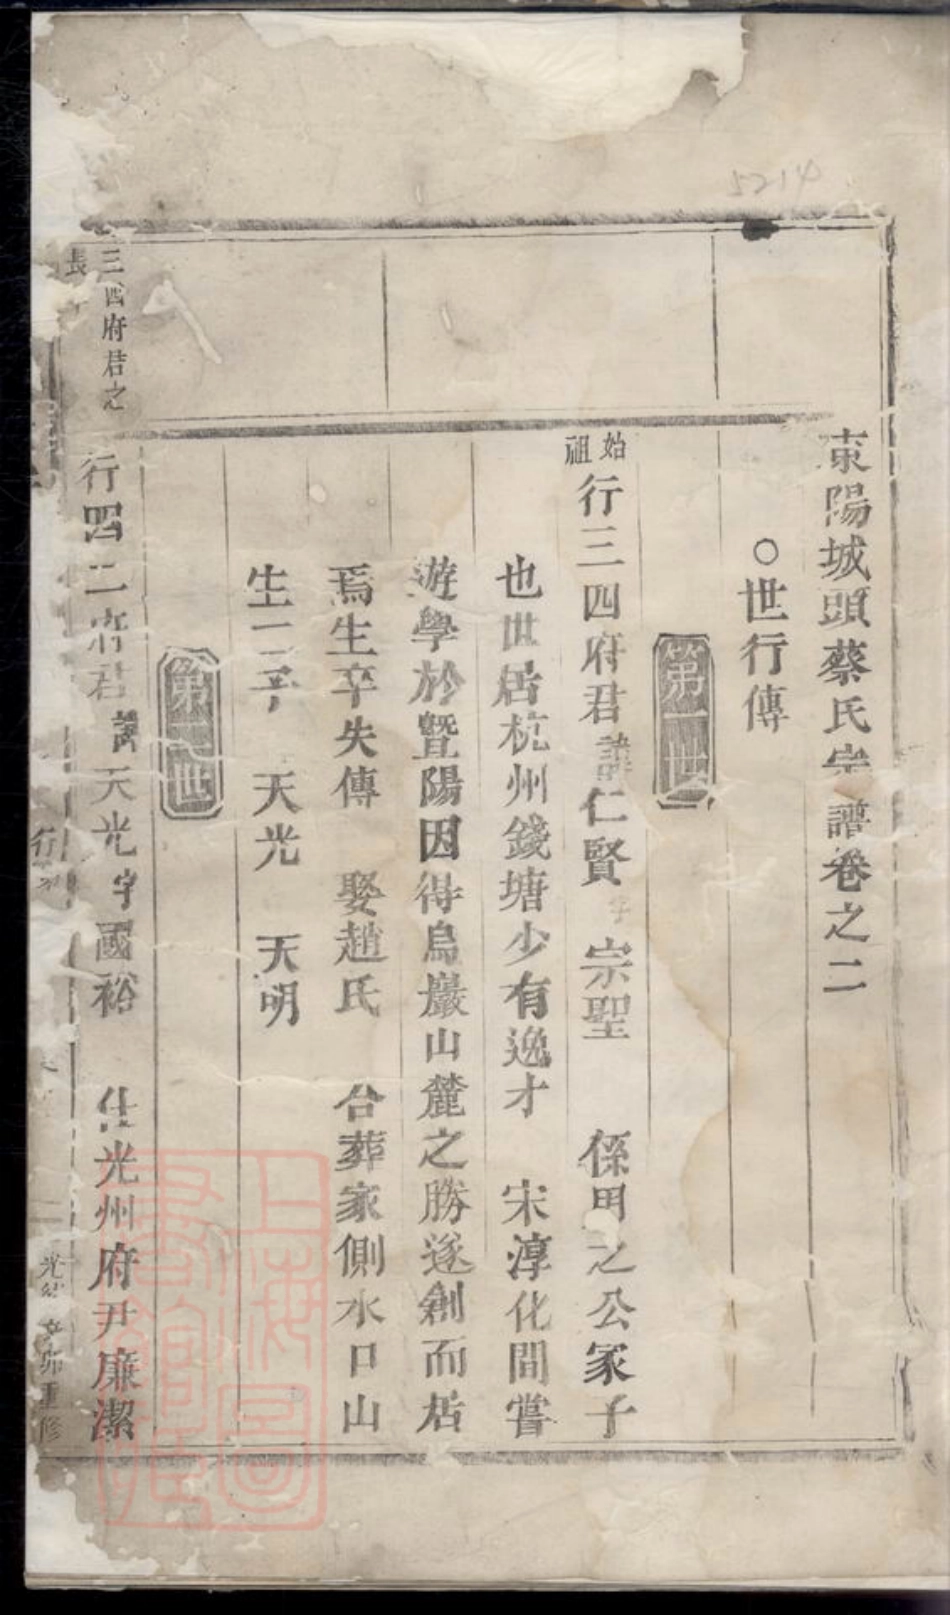 5214
東陽城頭蔡氏宗譜卷之二
○世行傳
第一世
始祖
行三四府君諱仁賢字宗聖 係用之公冢子
也世居杭州錢塘少有逸才 宋淳化間嘗
遊學於暨陽因得烏巖山麓之勝遂創而居
焉生卒失傳 娶趙氏 合葬家側水口山
生二子 天光 天明
第二世
三四府君之
長
行四二府君諱天光字國裕 仕光州府尹廉潔
行
光緒 卯重修
上海圖
書館藏